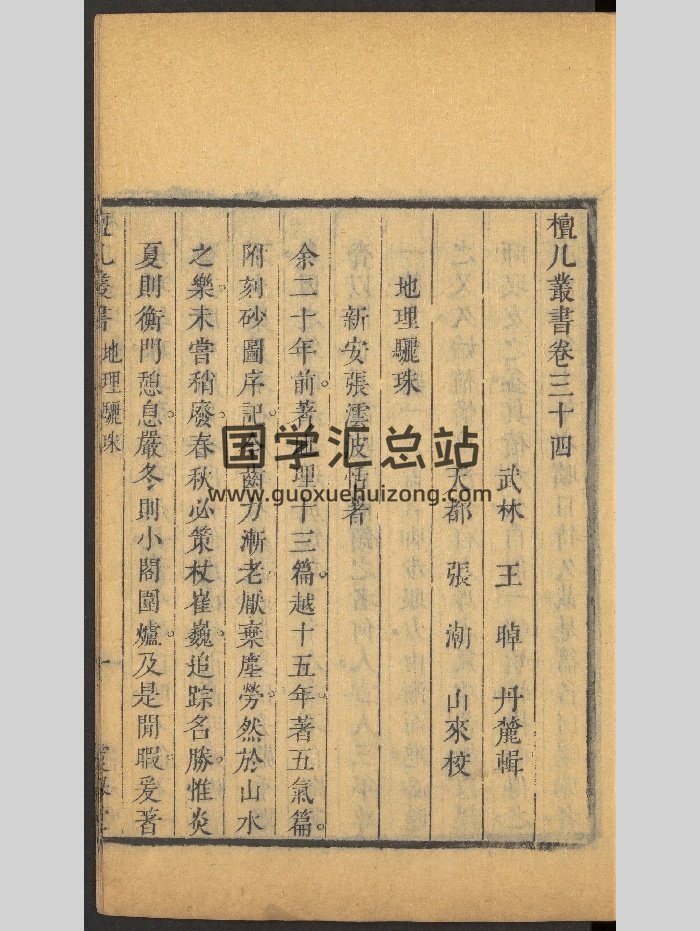 檀几叢書卷三十四
武林 王 晫 丹麓輯
天都 張 潮 山來校
地理驪珠
新安張澐波恬著
余二十年前著地理十三篇。越十五年。著五氣篇。
附刻砂圖序記。今齒力漸老。厭棄塵勞。然於山水
之樂。未嘗稍廢。春秋必策杖崔巍。追踪名勝。惟炎
夏則衡門憩息。嚴冬則小閣圍爐。及是閒暇。爰著
檀几叢書 地理驪珠 一
国学汇总站
www.guoxuehuizong.com